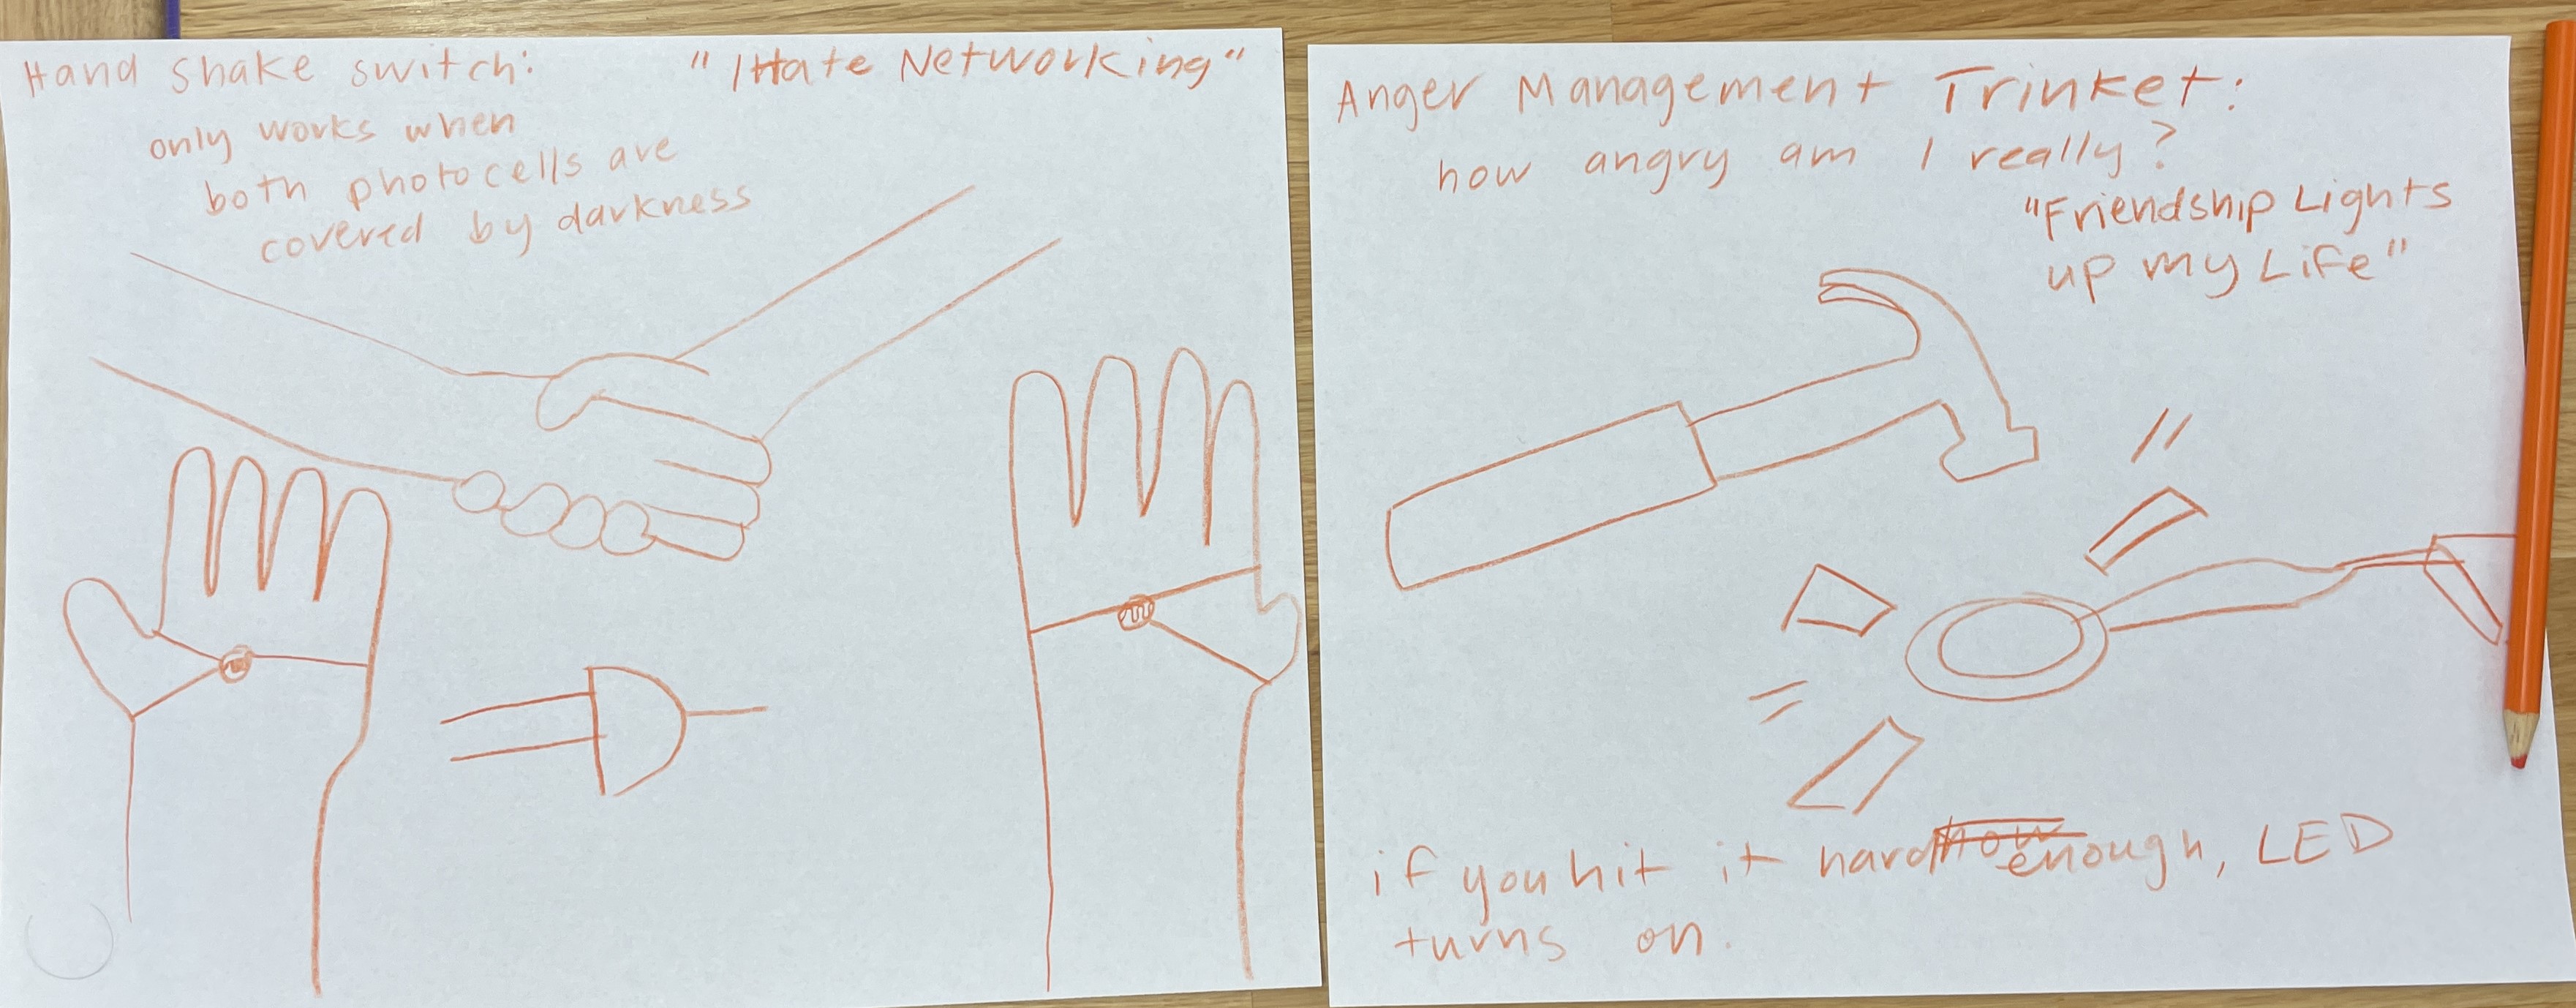 Hand shake switch:
"I Hate Networking"
only works when
both photocells are
covered by darkness
Anger Management Trinket:
how angry am I really?
"Friendship Lights
up my Life"
if you hit it hard how enough, LED
turns on.